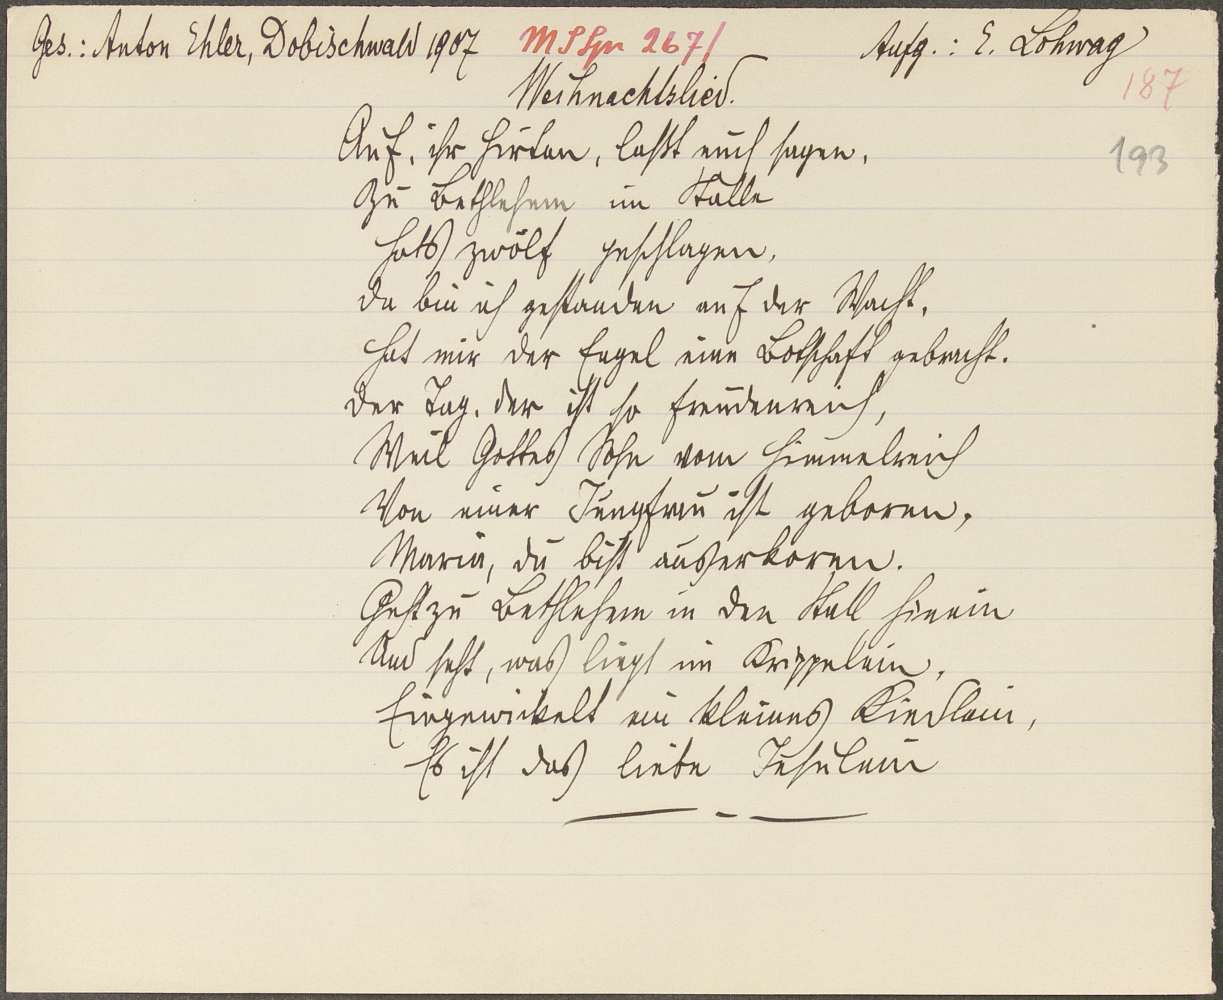 Ges.: Anton Ehler, Dobischwald 1907 MS Spr 267/ Aufg.: E. Lohwag
187
Weihnachtslied.
193
Auf, ihr Hirten, laßt euch sagen,
Zu Bethlehem im Stalle
hats zwölf geschlagen,
da bin ich gestanden auf der Wacht,
hat mir der Engel eine Botschaft gebracht.
Der Tag, der ist so freudenreich,
Weil Gottes Sohn vom Himmelreich
Von einer Jungfrau ist geboren,
Maria, du bist auserkoren.
Geht zu Bethlehem in den Stall hinein
Und seht, was liegt im Krippelein,
Eingewickelt ein kleines Kindlein,
Es ist das liebe Jesulein